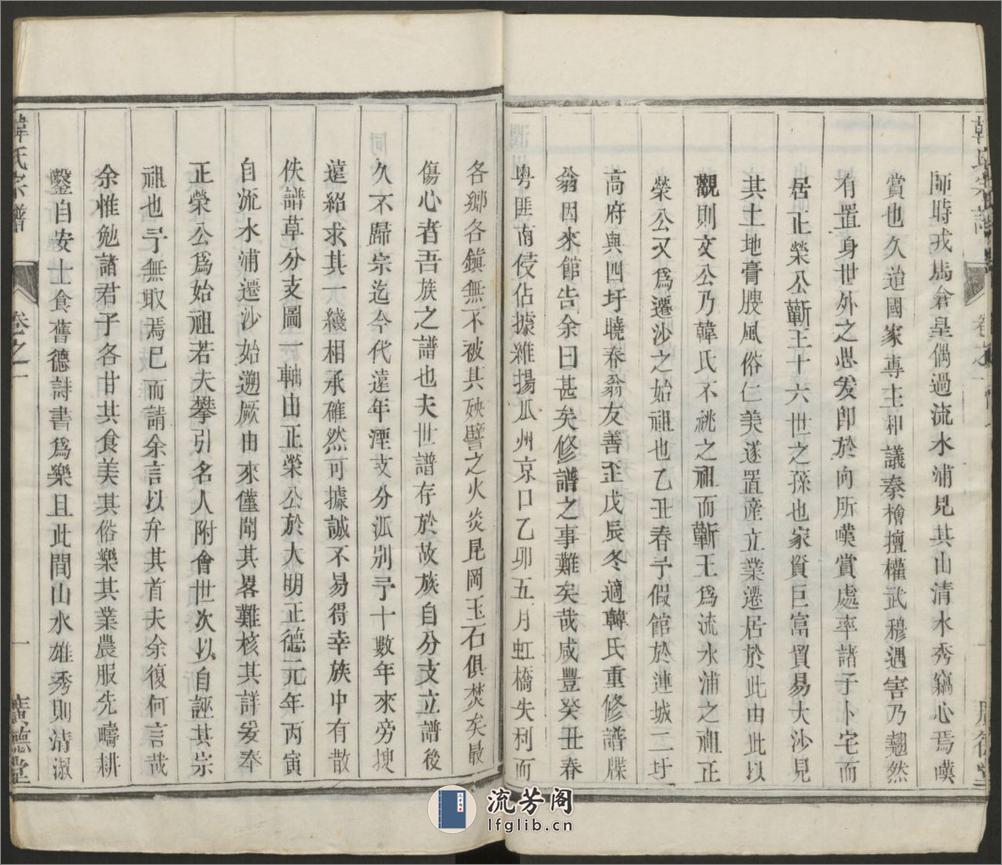 師時戎馬倉皇偶過流水浦見其山清水秀竊心焉嘆
賞也久迨國家專主和議秦檜擅權武穆遇害乃翹然
有置身世外之思爰卽於向所嘆賞處率諸子卜宅而
居正榮公蘄王十六世之孫也家資巨富貿易大沙見
其土地膏腴風俗仁美遂置産立業遷居於此由此以
觀則文公乃韓氏不祧之祖而蘄王爲流水浦之祖正
榮公又爲遷沙之始祖也乙丑春予假館於連城二圩
高府與四圩曉春翁友善歪戊辰冬適韓氏重修譜牒
翁因來館告余曰甚矣修譜之事難矣哉咸豐癸丑春
粵匪南侵佔據維揚瓜州京口乙卯五月虹橋失利而
各鄉各鎮無不被其殃譬之火炎昆岡玉石俱焚矣最
傷心者吾族之譜也夫世譜存於故族自分支立譜後
久不歸宗迄今代遠年湮支分泒别予十數年來旁搜
遠紹求其一綫相承確然可據誠不易得幸族中有散
佚譜草分支圖一軸由正榮公於大明正德元年丙寅
自流水浦遷沙始遡厥由來僅聞其畧難核其詳爰奉
正榮公爲始祖若夫攀引名人附會世次以自誣其宗
祖也予無取焉已而請余言以弁其首夫余復何言哉
余惟勉諸君子各甘其食美其俗樂其業農服先疇耕
鑿自安士食舊德詩書爲樂且此間山水雄秀則清淑
韓氏宗譜
卷之一
一
廣德堂
流芳阁
lfglib.cn